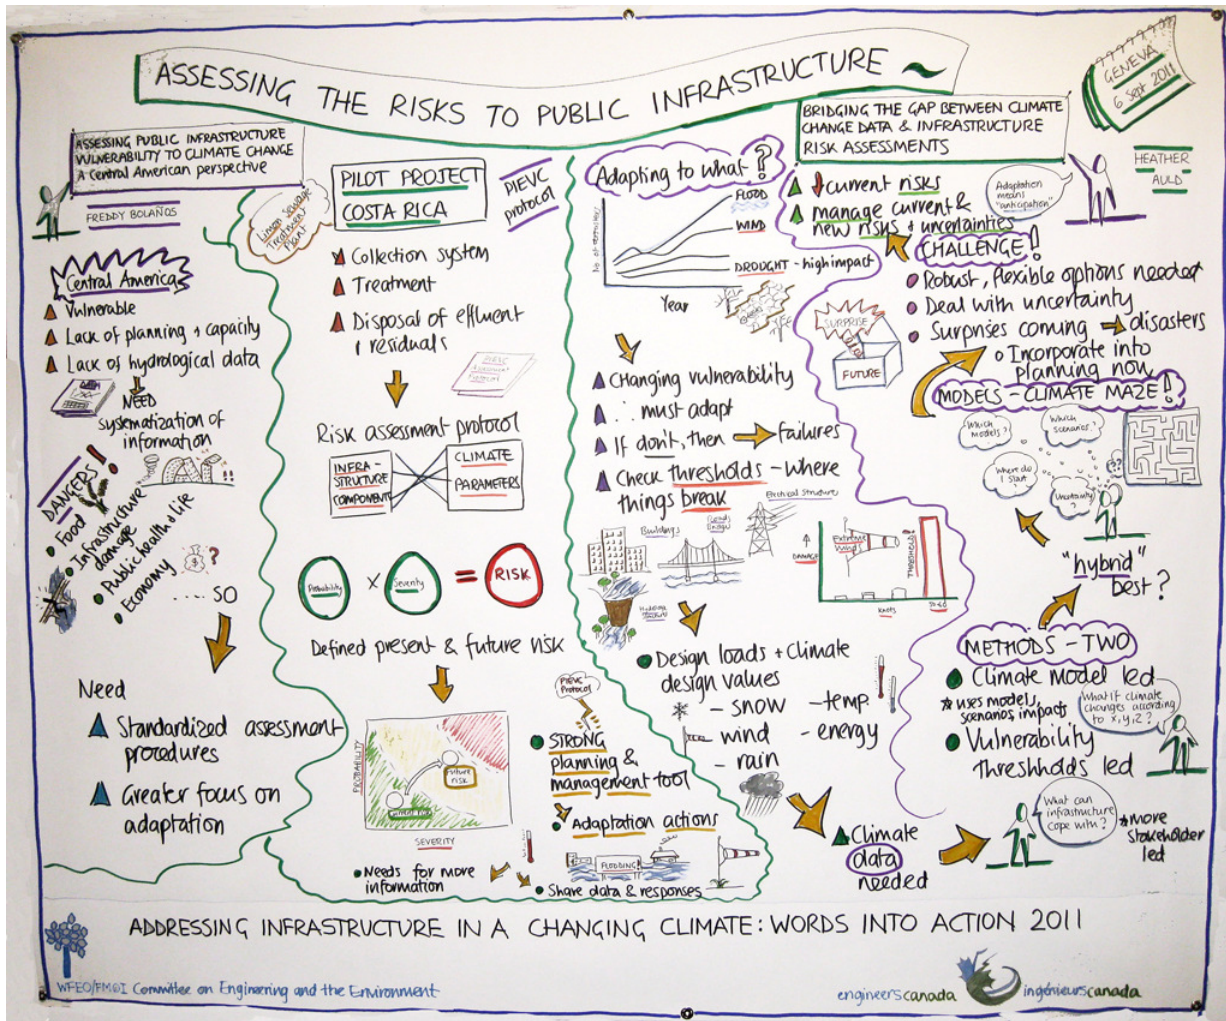 ASSESSING THE RISKS TO PUBLIC INFRASTRUCTURE
GENEVA
6 Sept 2011
ASSESSING PUBLIC INFRASTRUCTURE
VULNERABILITY TO CLIMATE CHANGE
A Central American perspective
FREDDY BOLAÑOS
Central America
Vulnerable
Lack of planning + capacity
Lack of hydrological data
DATA
NEED
systematization of
information
DANGERS!
Food
Infrastructure
damage
Public health & life
Economy
$ ?
..... SO
Need
Standardized assessment
procedures
Greater focus on
adaptation
Limon Sewage
Treatment
Plant
PILOT PROJECT
COSTA RICA
PIEVC
protocol
Collection system
Treatment
Disposal of effluent
& residuals
PIEVC
Assessment
Protocol
Risk assessment protocol
INFRA-
STRUCTURE
COMPONENTS
CLIMATE
PARAMETERS
Probability × Severity = RISK
Defined present & future risk
PROBABILITY
Future
risk
Current risk
SEVERITY
Needs for more
information
PIEVC
Protocol
STRONG
planning &
management tool
Adaptation actions
FLOODING
Share data & responses
Adapting to what?
FLOOD
WIND
DROUGHT - high impact
Year
Changing vulnerability
∴ must adapt
If don't, then → failures
Check thresholds - where
things break
Buildings
Road
Bridges
Electrical Structure
DAMAGE
Extreme
Wind
THRESHOLD
Knots
50-60
Design loads + Climate
design values
- snow
- wind
- rain
- temp
- energy
Climate
data
needed
BRIDGING THE GAP BETWEEN CLIMATE
CHANGE DATA & INFRASTRUCTURE
RISK ASSESSMENTS
HEATHER
AULD
Adaptation
means
"anticipation"
current risks
manage current &
new risks + uncertainties
CHALLENGE!
Robust, flexible options needed
Deal with uncertainty
Surprises coming → disasters
Incorporate into
planning now
SURPRISE
FUTURE
MODELS - CLIMATE MAZE!
Which
models?
Which
scenarios?
Where do
I start
Uncertainty
?
??
"hybrid"
best?
METHODS - TWO
Climate model led
*uses models,
scenarios, impact
What if climate
changes according
to x,y,z?
Vulnerability
threshholds led
What can
infrastructure
cope with?
*more
stakeholder
led
ADDRESSING INFRASTRUCTURE IN A CHANGING CLIMATE: WORDS INTO ACTION 2011
WFEO/FMOI Committee on Engineering and the Environment
engineerscanada
ingénieurscanada